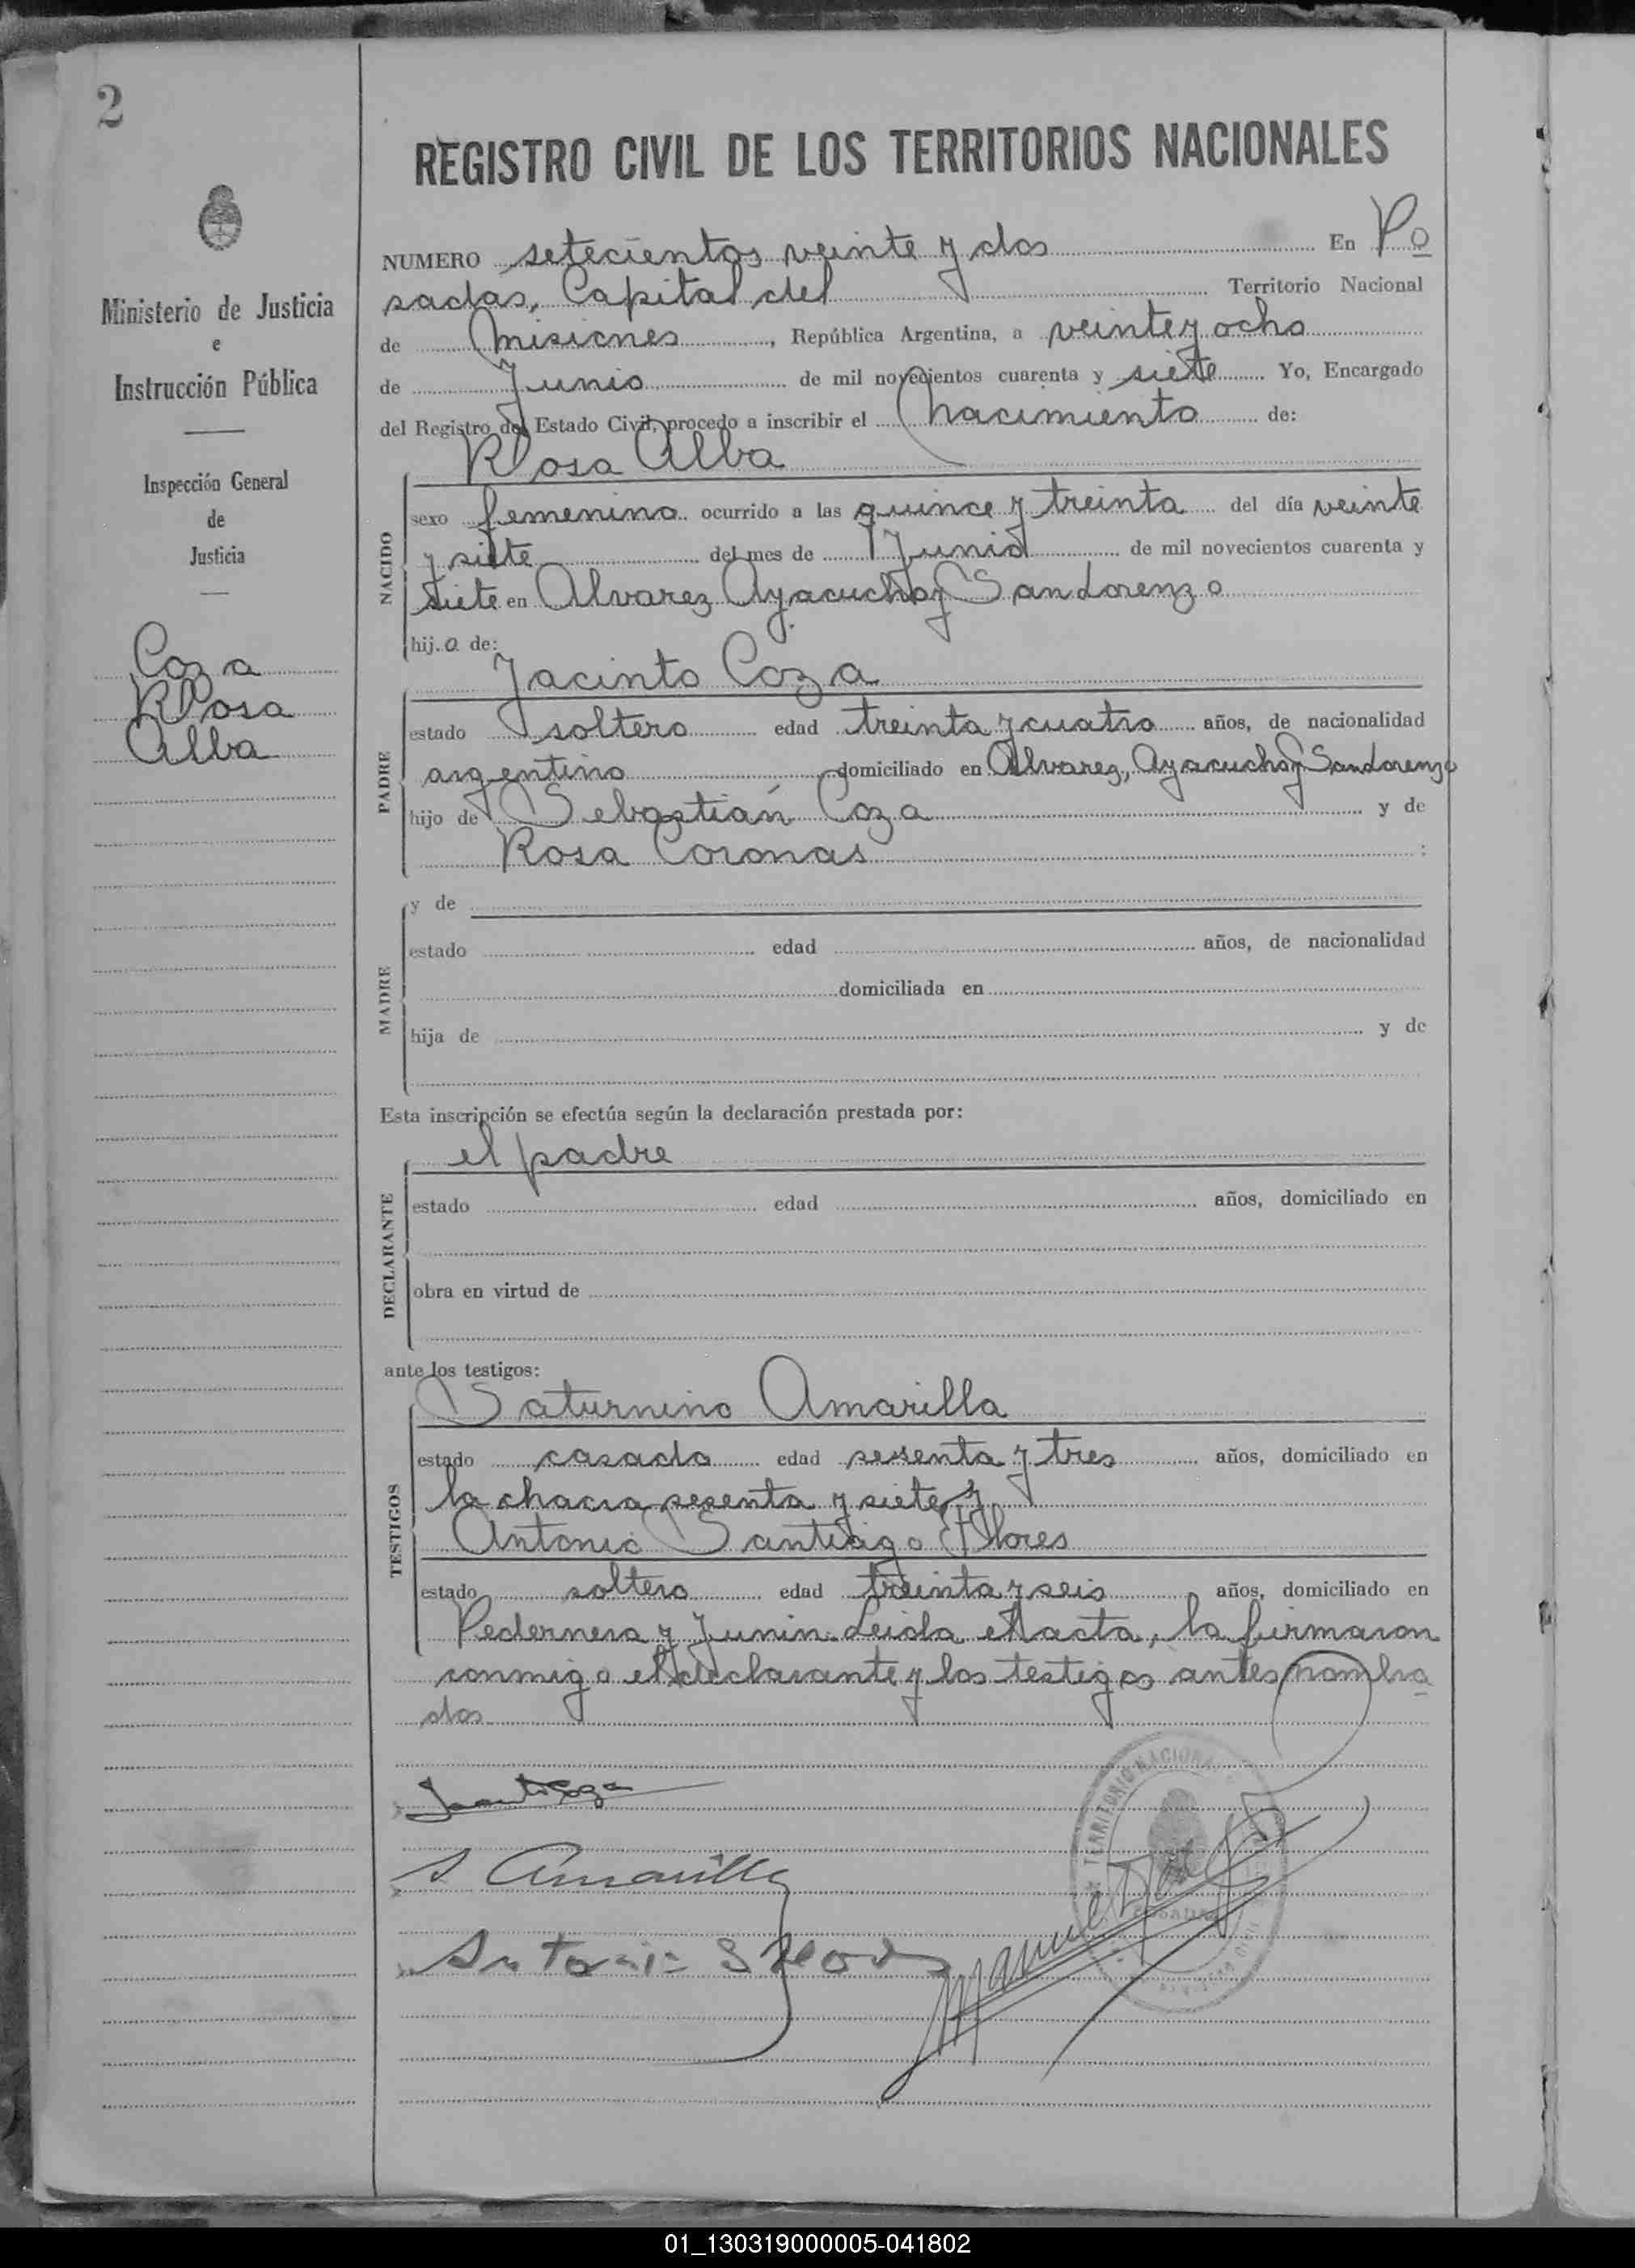 2
Ministerio de Justicia
e
Instrucción Pública
Inspección General
de
Justicia
Coza
Rosa
Alba
REGISTRO CIVIL DE LOS TERRITORIOS NACIONALES
NUMERO setecientos veinte y dos En Po
sadas, Capital del Territorio Nacional
de Misiones, República Argentina, a veinte y ocho
de Junio de mil novecientos cuarenta y siete Yo, Encargado
del Registro del Estado Civil, procedo a inscribir el nacimiento de:
Rosa Alba
NACIDO
sexo femenino ocurrido a las quince y treinta del día veinte
y siete del mes de Junio de mil novecientos cuarenta y
siete en Alvarez Ayacucho y San Lorenzo
hij.a de:
Jacinto Coza
PADRE
estado soltero edad treinta y cuatro años, de nacionalidad
argentino domiciliado en Alvarez, Ayacucho y San Lorenzo
hijo de Sebastián Coza y de
Rosa Coronas :
MADRE
y de
estado edad años, de nacionalidad
domiciliada en
hija de y de
Esta inscripción se efectúa según la declaración prestada por:
el padre
DECLARANTE
estado edad años, domiciliado en
obra en virtud de
ante los testigos:
Saturnino Amarilla
TESTIGOS
estado casado edad sesenta y tres años, domiciliado en
la chacra sesenta y siete y
Antonio Santiago Flores
estado soltero edad treinta y seis años, domiciliado en
Pedernera y Junin. Leida el acta, la firmaron
conmigo el declarante y los testigos antes nombra
dos
S Amarilla
Antonio S Flores
Manuel
TERRITORIO NACIONAL
POSADAS
01_130319000005-041802